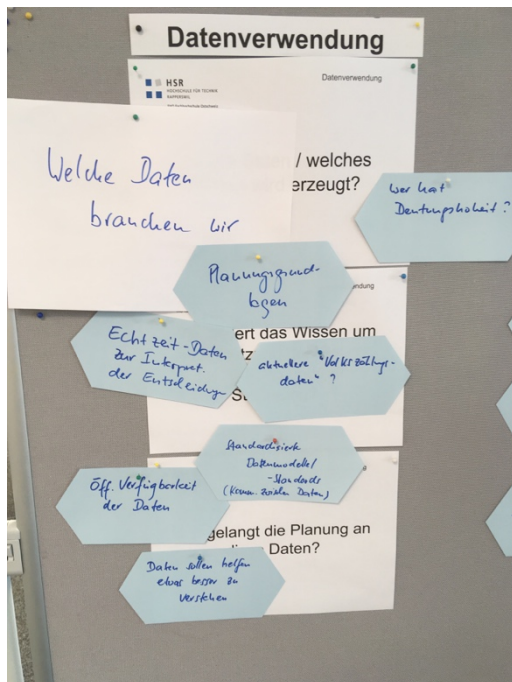 Datenverwendung
HSR
HOCHSCHULE FÜR TECHNIK
RAPPERSWIL
Datenverwendung
/ welches
erzeugt?
Welche Daten
brauchen wir
wer hat
Deutungshoheit?
Planungsgrund-
lagen
ndung
Echtzeit-Daten
zur Interpret.
der Entscheidungen
ert das Wissen um
aktuellere "Volkszählungs-
daten" ?
St
Standardisierte
Datenmodelle/
-Standards
(Komm. zwischen Daten)
Öff. Verfügbarkeit
der Daten
gelangt die Planung an
Daten?
Daten sollen helfen
etwas besser zu
verstehen